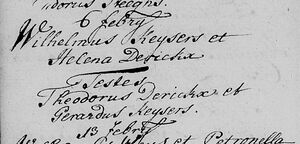 6 febry
Wilhelmus Keysers et
Helena Derickx
Testes
Theodorus Derickx et
Gerardus Keysers.
13 febry
et Petronella